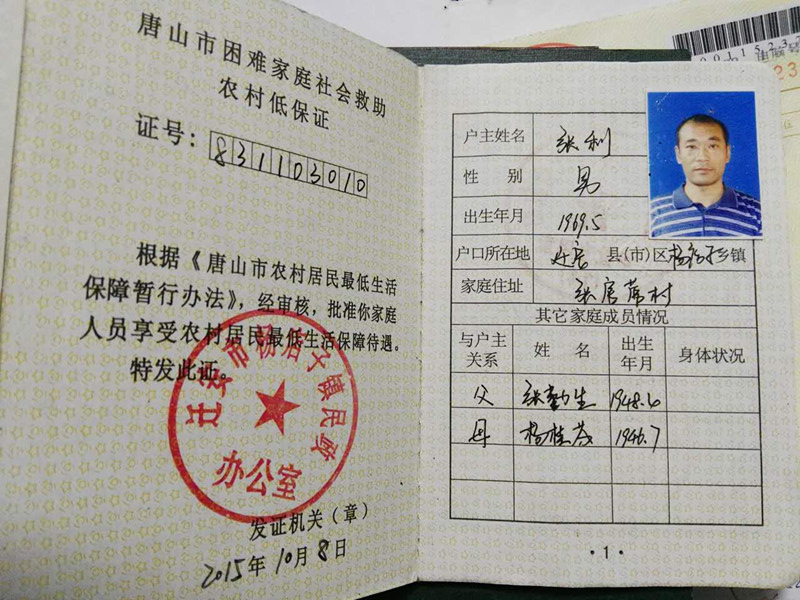 唐山市困难家庭社会救助
农村低保证
证号：831103010
根据《唐山市农村居民最低生活
保障暂行办法》，经审核，批准你家庭
人员享受农村居民最低生活保障待遇。
特发此证。
迁安市杨店子镇民政
办公室
发证机关（章）
2015年10月8日
户主姓名 张利
性 别 男
出生年月 1969.5
户口所在地 迁安 县(市)区杨店子乡镇
家庭住址 张官营村
其它家庭成员情况
与户主关系 姓 名 出生年月 身体状况
父 张勤生 1948.6
母 杨桂芬 1946.7
·1·